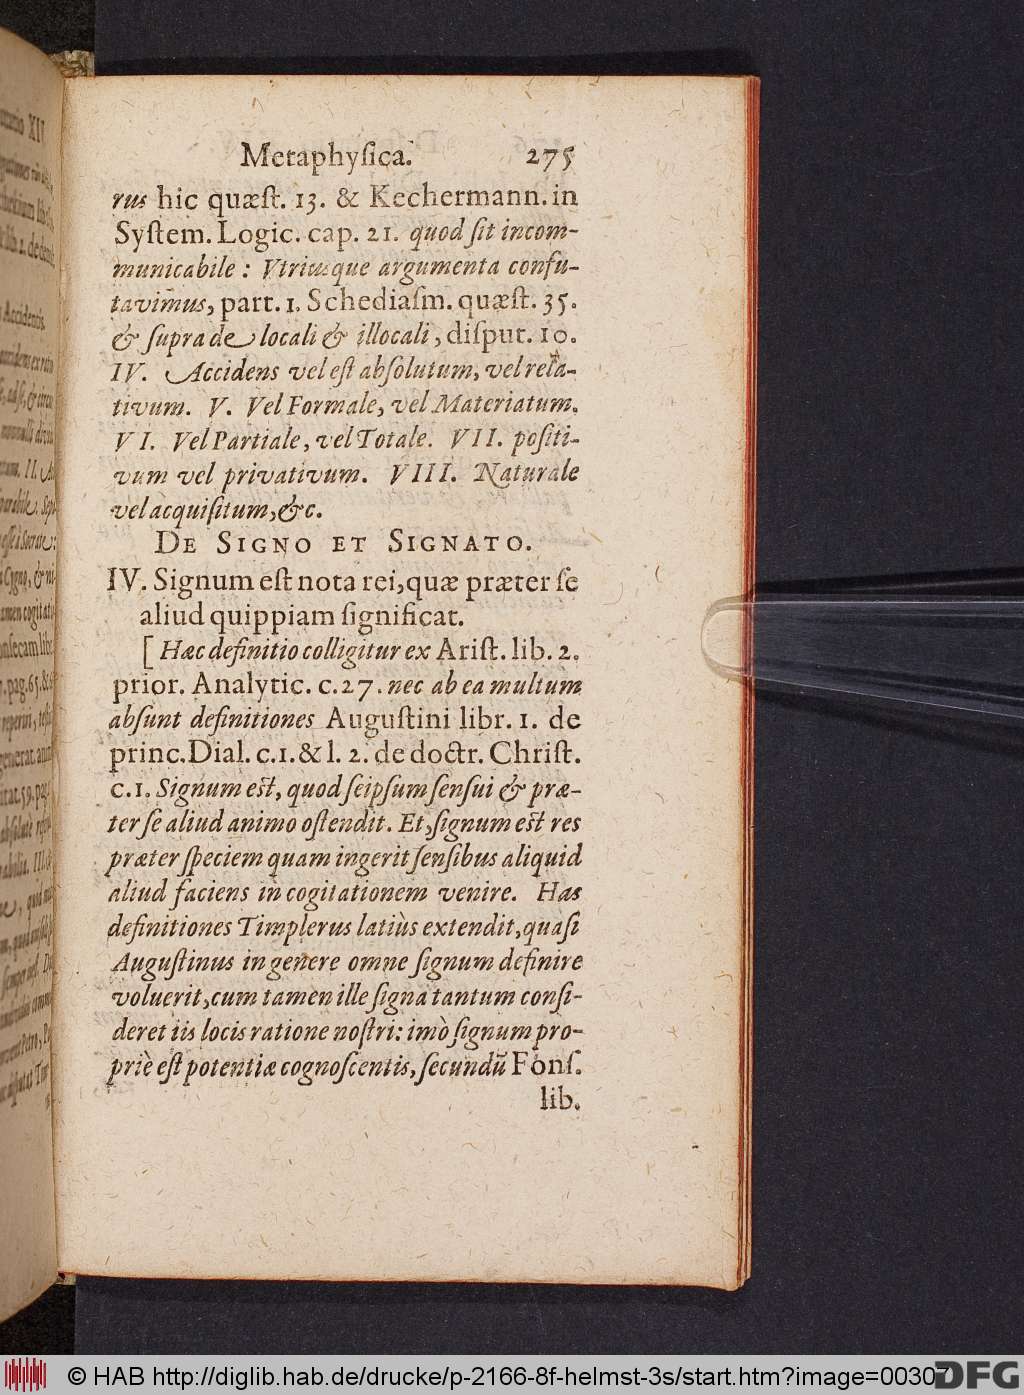 Metaphyſica. 275
rus hic quæſt. 13. & Kechermann. in
Syſtem. Logic. cap. 21. quod ſit incom-
municabile : Vtriusque argumenta confu-
tavimus, part. 1. Schediaſm. quæſt. 35.
& ſupra de locali & illocali, diſput. 10.
IV. Accidens vel eſt abſolutum, vel rela-
tivum. V. Vel Formale, vel Materiatum.
VI. Vel Partiale, vel Totale. VII. poſiti-
vum vel privativum. VIII. Naturale
vel acquiſitum, &c.
DE SIGNO ET SIGNATO.
IV. Signum eſt nota rei, quæ præter ſe
aliud quippiam ſignificat.
[ Hæc definitio colligitur ex Ariſt. lib. 2.
prior. Analytic. c. 27. nec ab ea multum
abſunt definitiones Auguſtini libr. 1. de
princ. Dial. c. 1. & l. 2. de doctr. Chriſt.
c. 1. Signum eſt, quod ſeipſum ſenſui & præ-
ter ſe aliud animo oſtendit. Et, ſignum eſt res
præter ſpeciem quam ingerit ſenſibus aliquid
aliud faciens in cogitationem venire. Has
definitiones Timplerus latiùs extendit, quaſi
Auguſtinus in genere omne ſignum definire
voluerit, cum tamen ille ſigna tantum conſi-
deret iis locis ratione noſtri: imò ſignum pro-
priè eſt potentiæ cognoſcentis, ſecundũ Fonſ.
lib.
© HAB http://diglib.hab.de/drucke/p-2166-8f-helmst-3s/start.htm?image=00307
DFG